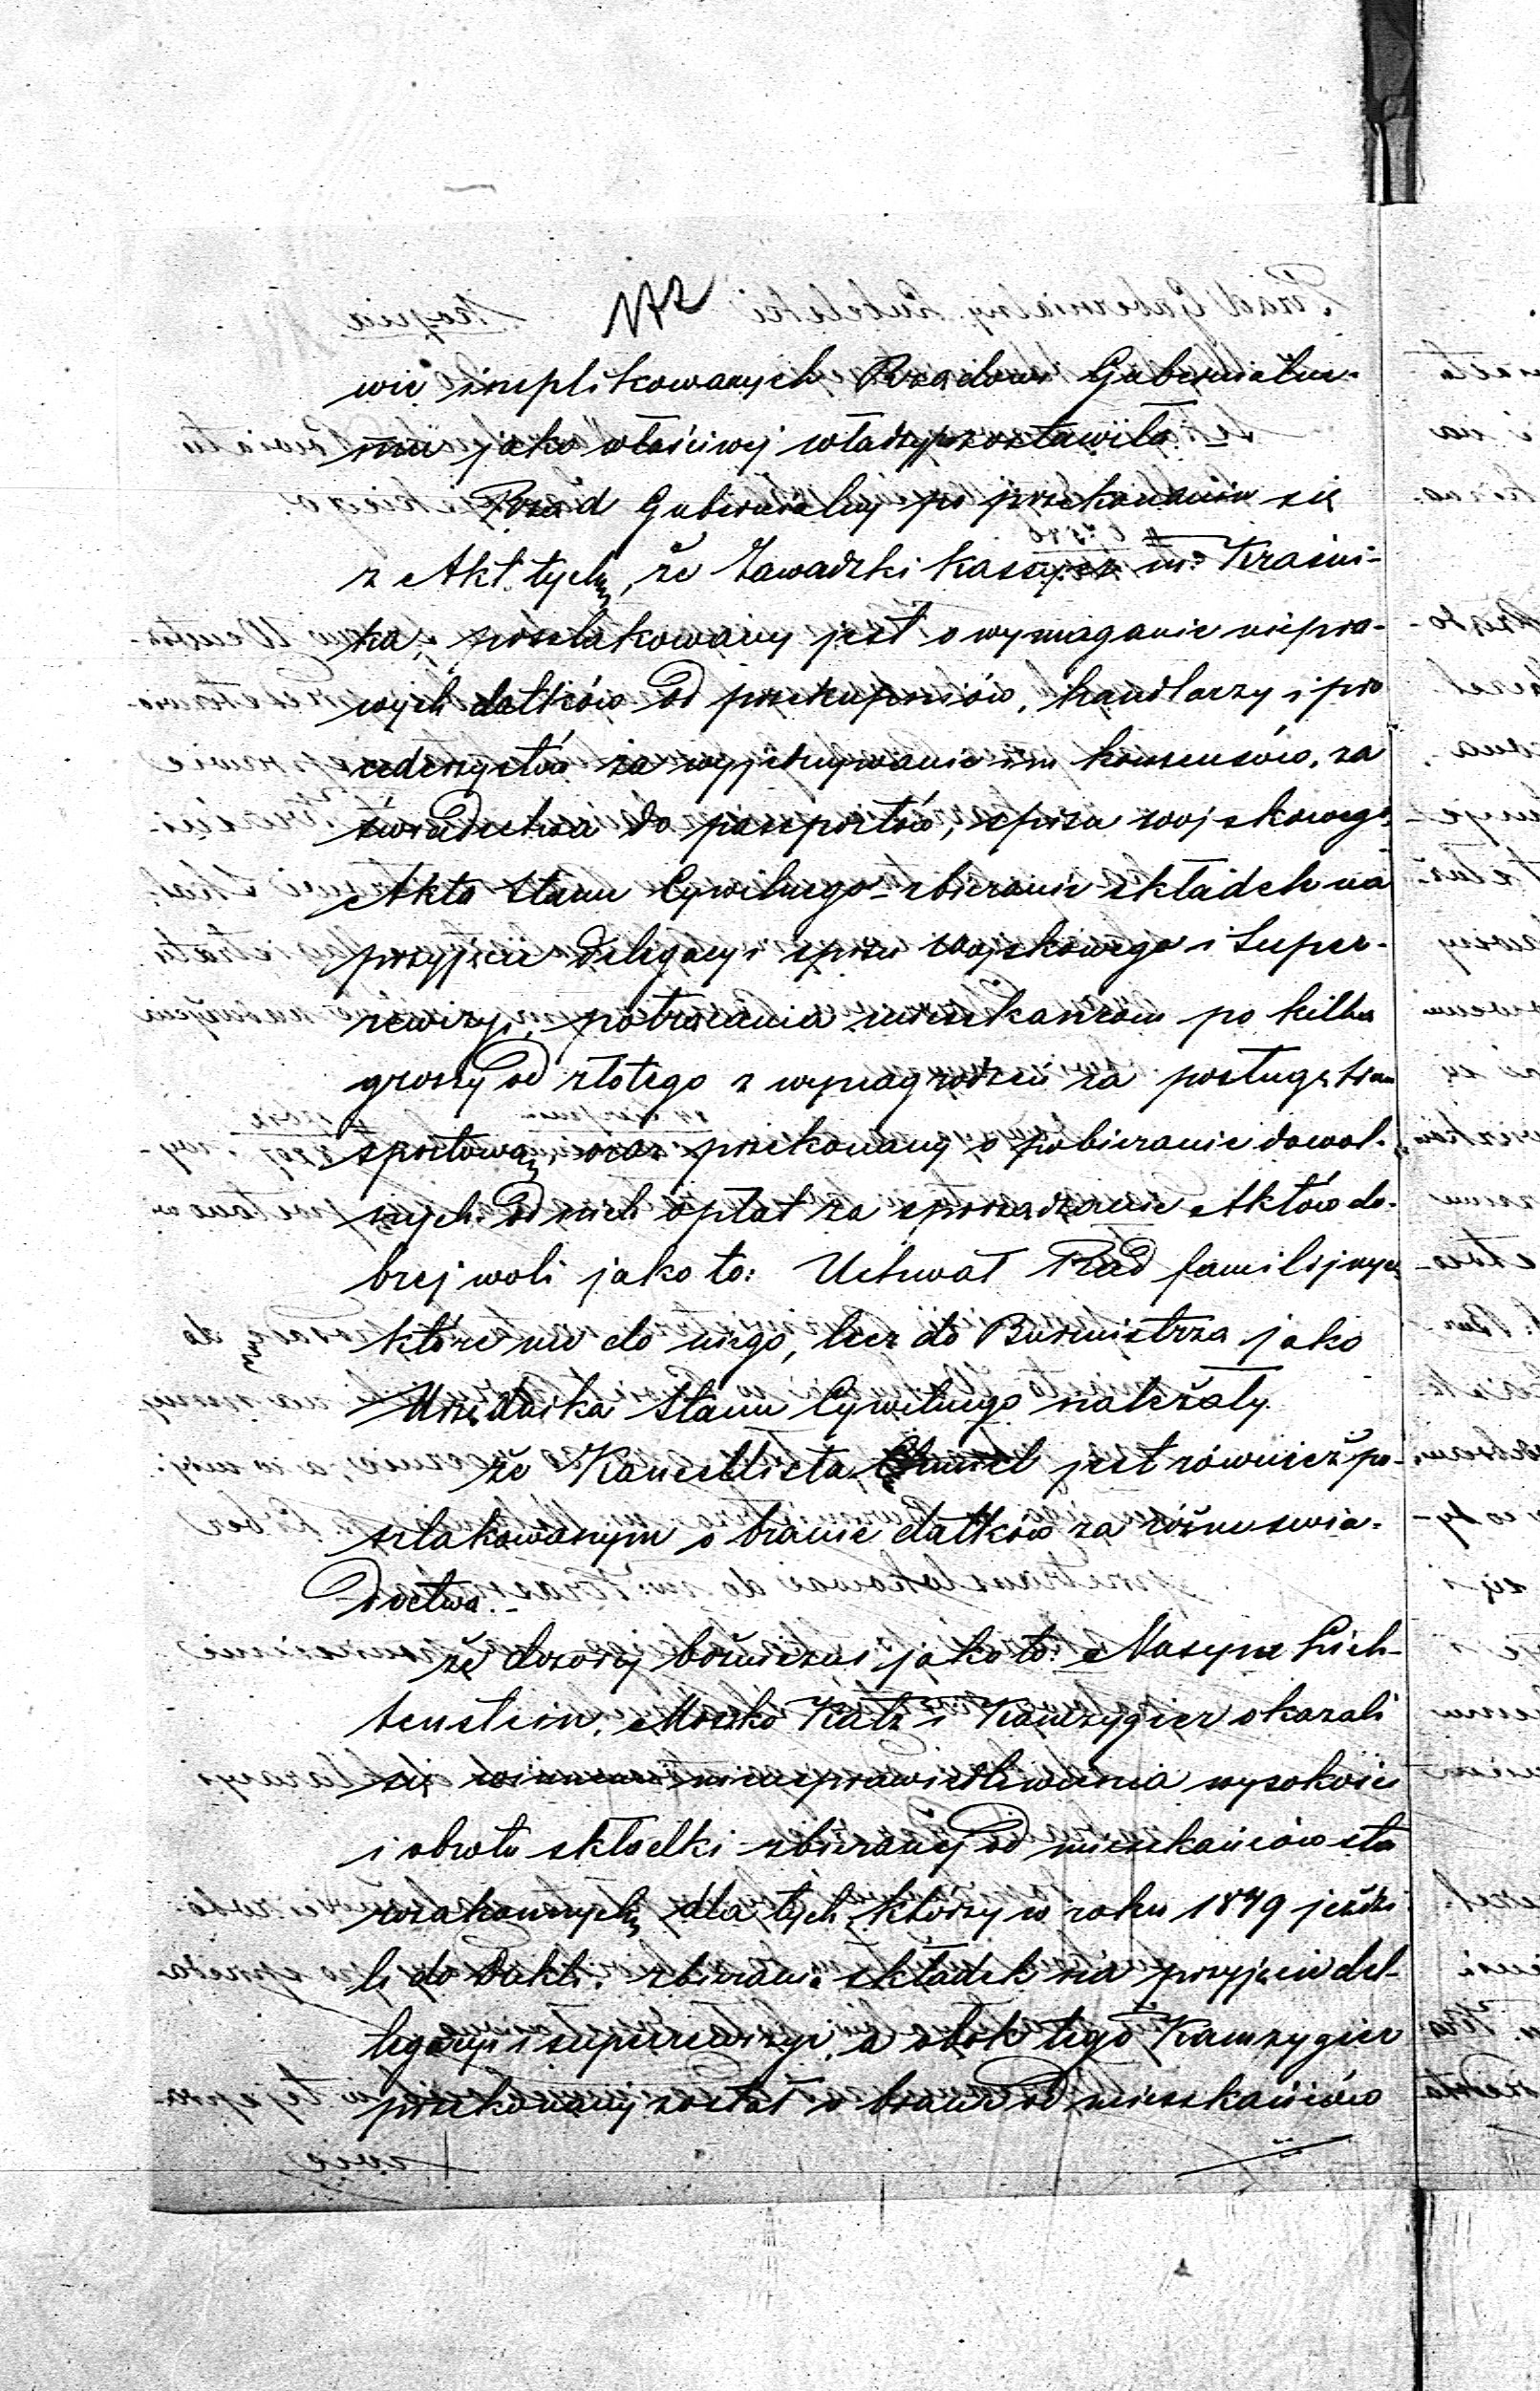 172
wie implikowanych Rządowi Gubernialne-
mu jako właściwej władzy pozostawiła
Rząd Gubernialny po przekonaniu się
z Akt tych, że Zawadzki Kassyer m. Kraśni-
ka, poszlakowany jest o wymaganie niepra-
wych datków od przekupniów, handlarzy i pro
cederzystów za wyjednywanie im konsensów, za
świadectwa do paszportów, spisu wojskowego,
Akta Stanu Cywilnego - zbieranie składek na
przyjęcie delegacyi spisu wojskowego i Super-
rewizyi, potrącania mieszkańcom po kilka
groszy od złotego z wynagrodzeń za posługę tran
sportową, oraz przekonany o pobieranie dowol-
nych od nich opłat za sporządzenie Aktów do-
brej woli jako to: Uchwał Rad familijnych
które nie do niego, lecz do Burmistrza jako
Urzędnika Stanu Cywilnego należały.
że Kancellista Chmiel jest również po-
szlakowanym o branie datków za różne świa-
dectwa.-
że dozory bóżnicze jako to: Masym Lich-
tenstein, Moszko Katz i Kamzygier okazali
się winnemi nieusprawiedliwienia wysokości
i obrotu składki zbieranej od mieszkańców sta
rozakonnych dla tych, którzy w roku 1849 jeździ
li do Dukli, zbierania składek na przyjęcie del-
legacyi i superrewizyi, a obok tego Kamzygier
przekonany został o branie od mieszkańców